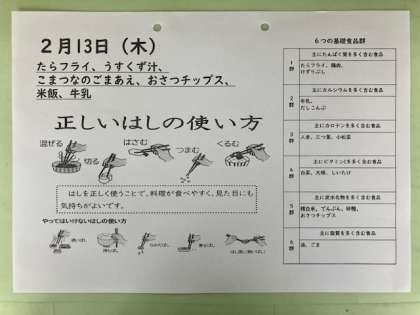 2月13日（木）
たらフライ、うすくず汁、
こまつなのごまあえ、おさつチップス、
米飯、牛乳
正しいはしの使い方
混ぜる
はさむ
くるむ
切る
つまむ
はしを正しく使うことで、料理が食べやすく、見た目にも
気持ちがよいです。
やってはいけないはしの使い方
６つの基礎食品群
1群
主にたんぱく質を多く含む食品
たらフライ、鶏肉、
けずりぶし
2群
主にカルシウムを多く含む食品
牛乳、
だしこんぶ
3群
主にカロテンを多く含む食品
人参、三つ葉、小松菜
4群
主にビタミンCを多く含む食品
白菜、大根、しいたけ
5群
主に炭水化物を多く含む食品
精白米、でんぷん、砂糖、
おさつチップス
6群
主に脂質を多く含む食品
油、ごま